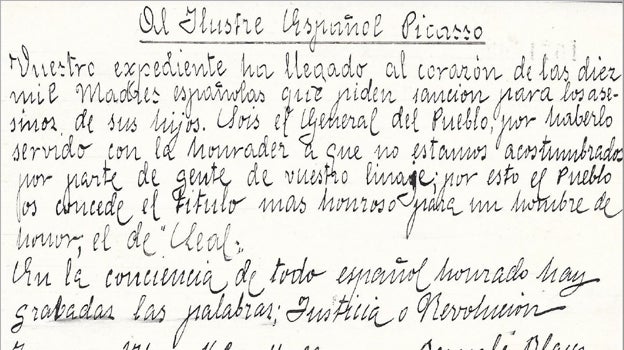 Al Ilustre Español Picasso
Vuestro expediente ha llegado al corazón de las diez
mil Madres españolas que piden sanción para los ase-
sinos de sus hijos. Sois el General del Pueblo, por haberlo
servido con la honradez a que no estamos acostumbrados
por parte de gente de vuestro linage; por esto el Pueblo
os concede el titulo mas honroso para un hombre de
honor, el de "Leal".
En la conciencia de todo español honrado hay
grabadas las palabras; Justicia o Revolución